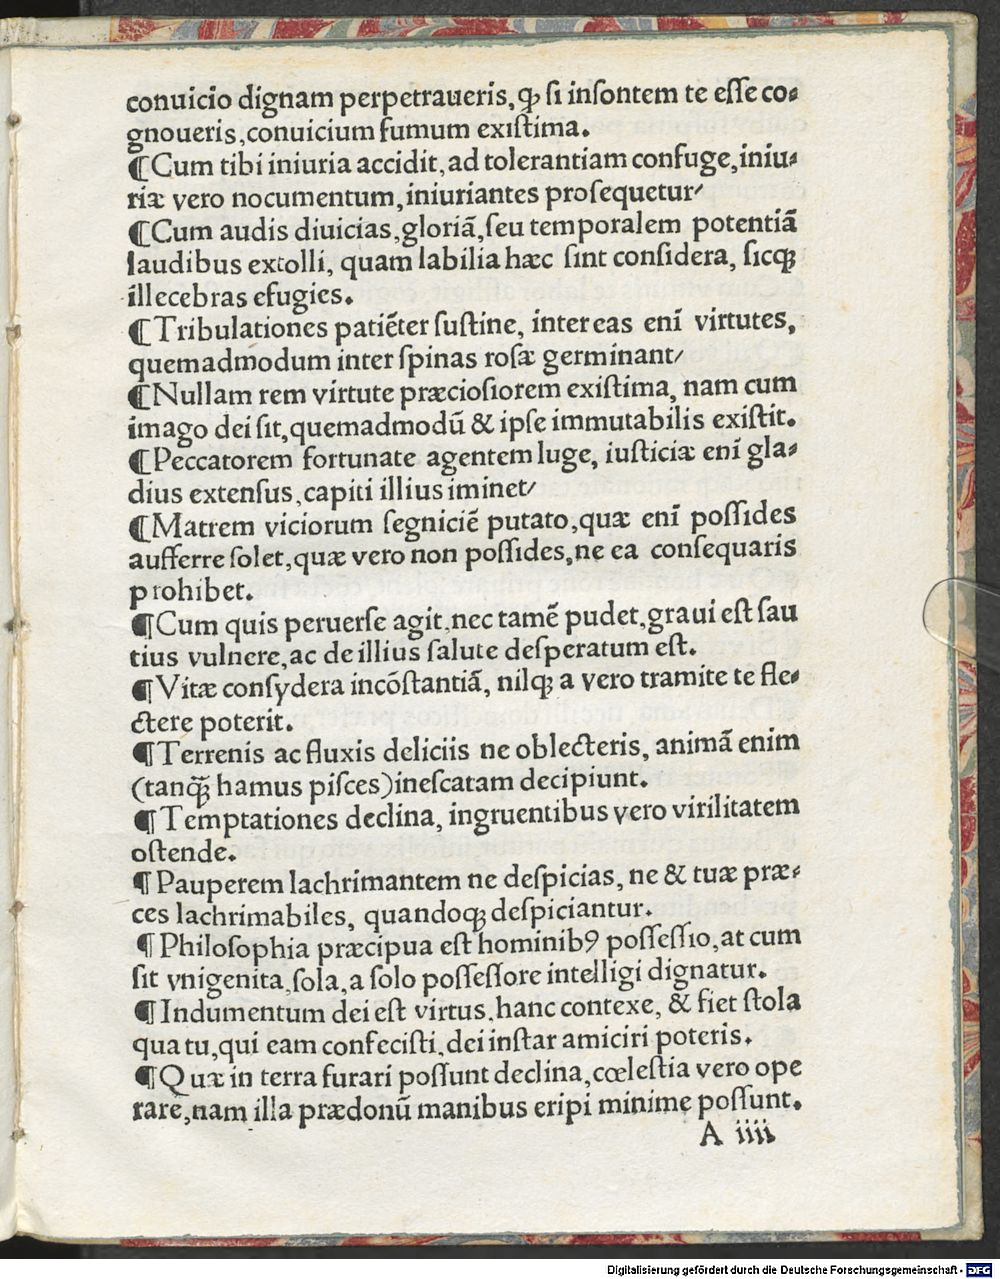 conuicio dignam perpetraueris, ꝙ ſi inſontem te eſſe co⸗
gnoueris, conuicium fumum exiſtima.
¶Cum tibi iniuria accidit, ad tolerantiam confuge, iniu⸗
riæ vero nocumentum, iniuriantes proſequetur/
¶Cum audis diuicias, gloriā, ſeu temporalem potentiā
laudibus extolli, quam labilia hæc ſint conſidera, ſicqꝫ
illecebras efugies.
¶Tribulationes patiēter ſuſtine, inter eas enī virtutes,
quemadmodum inter ſpinas roſæ germinant/
¶Nullam rem virtute præcioſiorem exiſtima, nam cum
imago dei ſit, quemadmodū & ipſe immutabilis exiſtit.
¶Peccatorem fortunate agentem luge, iuſticiæ enī gla⸗
dius extenſus, capiti illius iminet/
¶Matrem viciorum ſegniciē putato, quæ enī poſſides
aufferre ſolet, quæ vero non poſſides, ne ea conſequaris
prohibet.
¶Cum quis peruerſe agit, nec tamē pudet, graui eſt ſau
tius vulnere, ac de illius ſalute deſperatum eſt.
¶Vitæ conſydera incōſtantiā, nilqꝫ a vero tramite te fle⸗
ctere poterit.
¶Terrenis ac fluxis deliciis ne oblecteris, animā enim
(tanqꝫ̄ hamus piſces) ineſcatam decipiunt.
¶Temptationes declina, ingruentibus vero virilitatem
oſtende.
¶Pauperem lachrimantem ne deſpicias, ne & tuæ præ⸗
ces lachrimabiles, quandoqꝫ deſpiciantur.
¶Philoſophia præcipua eſt hominibꝰ poſſeſſio, at cum
ſit vnigenita, ſola, a ſolo poſſeſſore intelligi dignatur.
¶Indumentum dei eſt virtus, hanc contexe, & fiet ſtola
qua tu, qui eam confeciſti, dei inſtar amiciri poteris.
¶Quæ in terra furari poſſunt declina, cœleſtia vero ope
rare, nam illa prædonū manibus eripi minime poſſunt.
A iiii
Digitalisierung gefördert durch die Deutsche Forschungsgemeinschaft - DFG